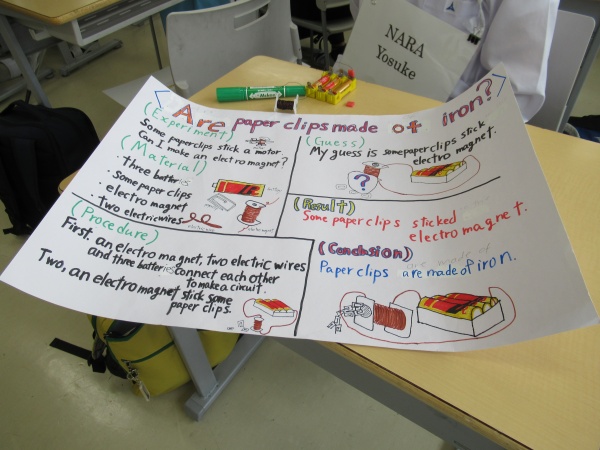 NARA
Yosuke
Are paper clips made of iron?
(Experiment)
Some paperclips stick a motor.
Can I make an electro magnet?
(Material)
· three batteries
· Some paper clips
· electro magnet
· two electric wires
(Procedure)
First, an electro magnet, two electric wires
and three batteries connect each other
to make a circuit.
Two, an electro magnet stick some
paper clips.
(Guess)
My guess is some paper clips stick
electro magnet.
?
(Result)
Some paper clips sticked
electro magnet.
(Conclusion)
Paper clips are made of iron.